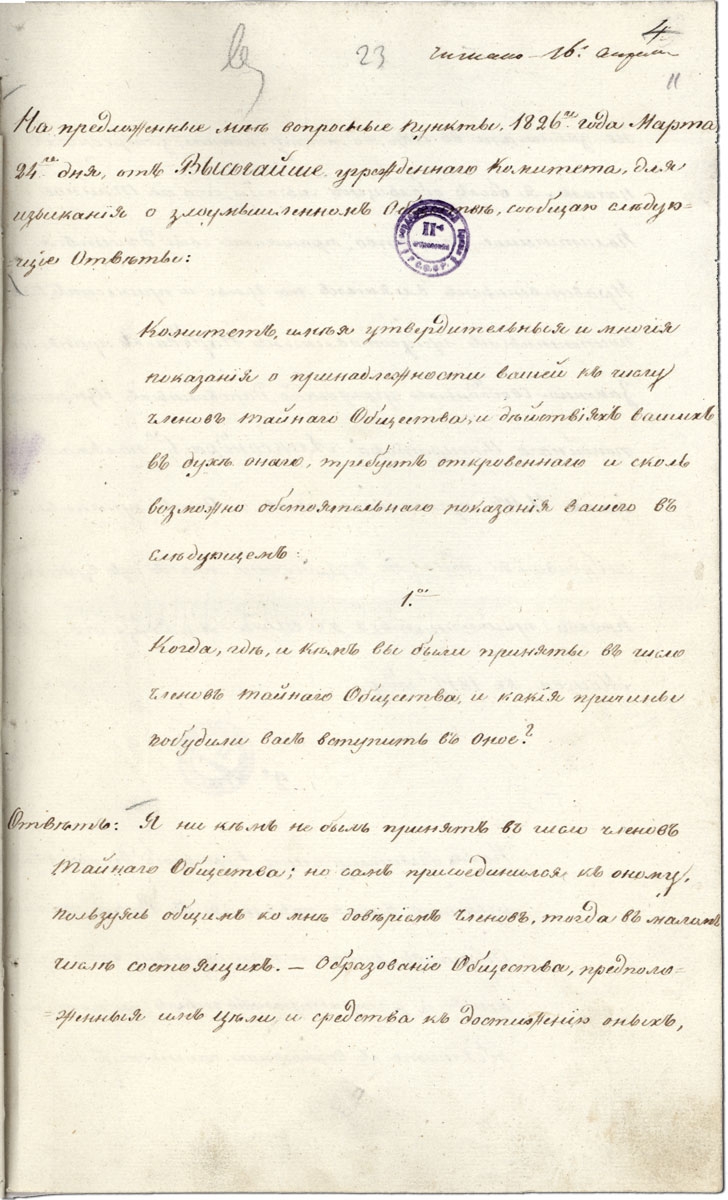 4
23
читано 16. Апреля
11
На предложенные мнѣ вопросные пункты, 1826го года Марта
24го дня, отъ Высочайше учрежденнаго Комитета, для
изысканія о злоумышленномъ Обществѣ, сообщаю слѣдую-
щіе Отвѣты:
Комитетъ, имѣя утвердительныя и многія
показанія о принадлежности вашей къ числу
членовъ тайнаго Общества, и дѣйствіяхъ вашихъ
въ духѣ онаго, требуетъ откровеннаго и сколь
возможно обстоятельнаго показанія вашего въ
слѣдующемъ:
1.ое
Когда, гдѣ, и кѣмъ вы были приняты въ число
членовъ тайнаго Общества, и какія причины
побудили васъ вступить въ оное?
Отвѣтъ: Я ни кѣмъ не былъ принятъ въ число членовъ
тайнаго Общества; но самъ присоединился къ оному,
пользуясь общимъ ко мнѣ довѣріемъ членовъ, тогда въ маломъ
числѣ состоящихъ. — Образованіе Общества, предполо-
женныя имъ цѣли и средства къ достиженію оныхъ,